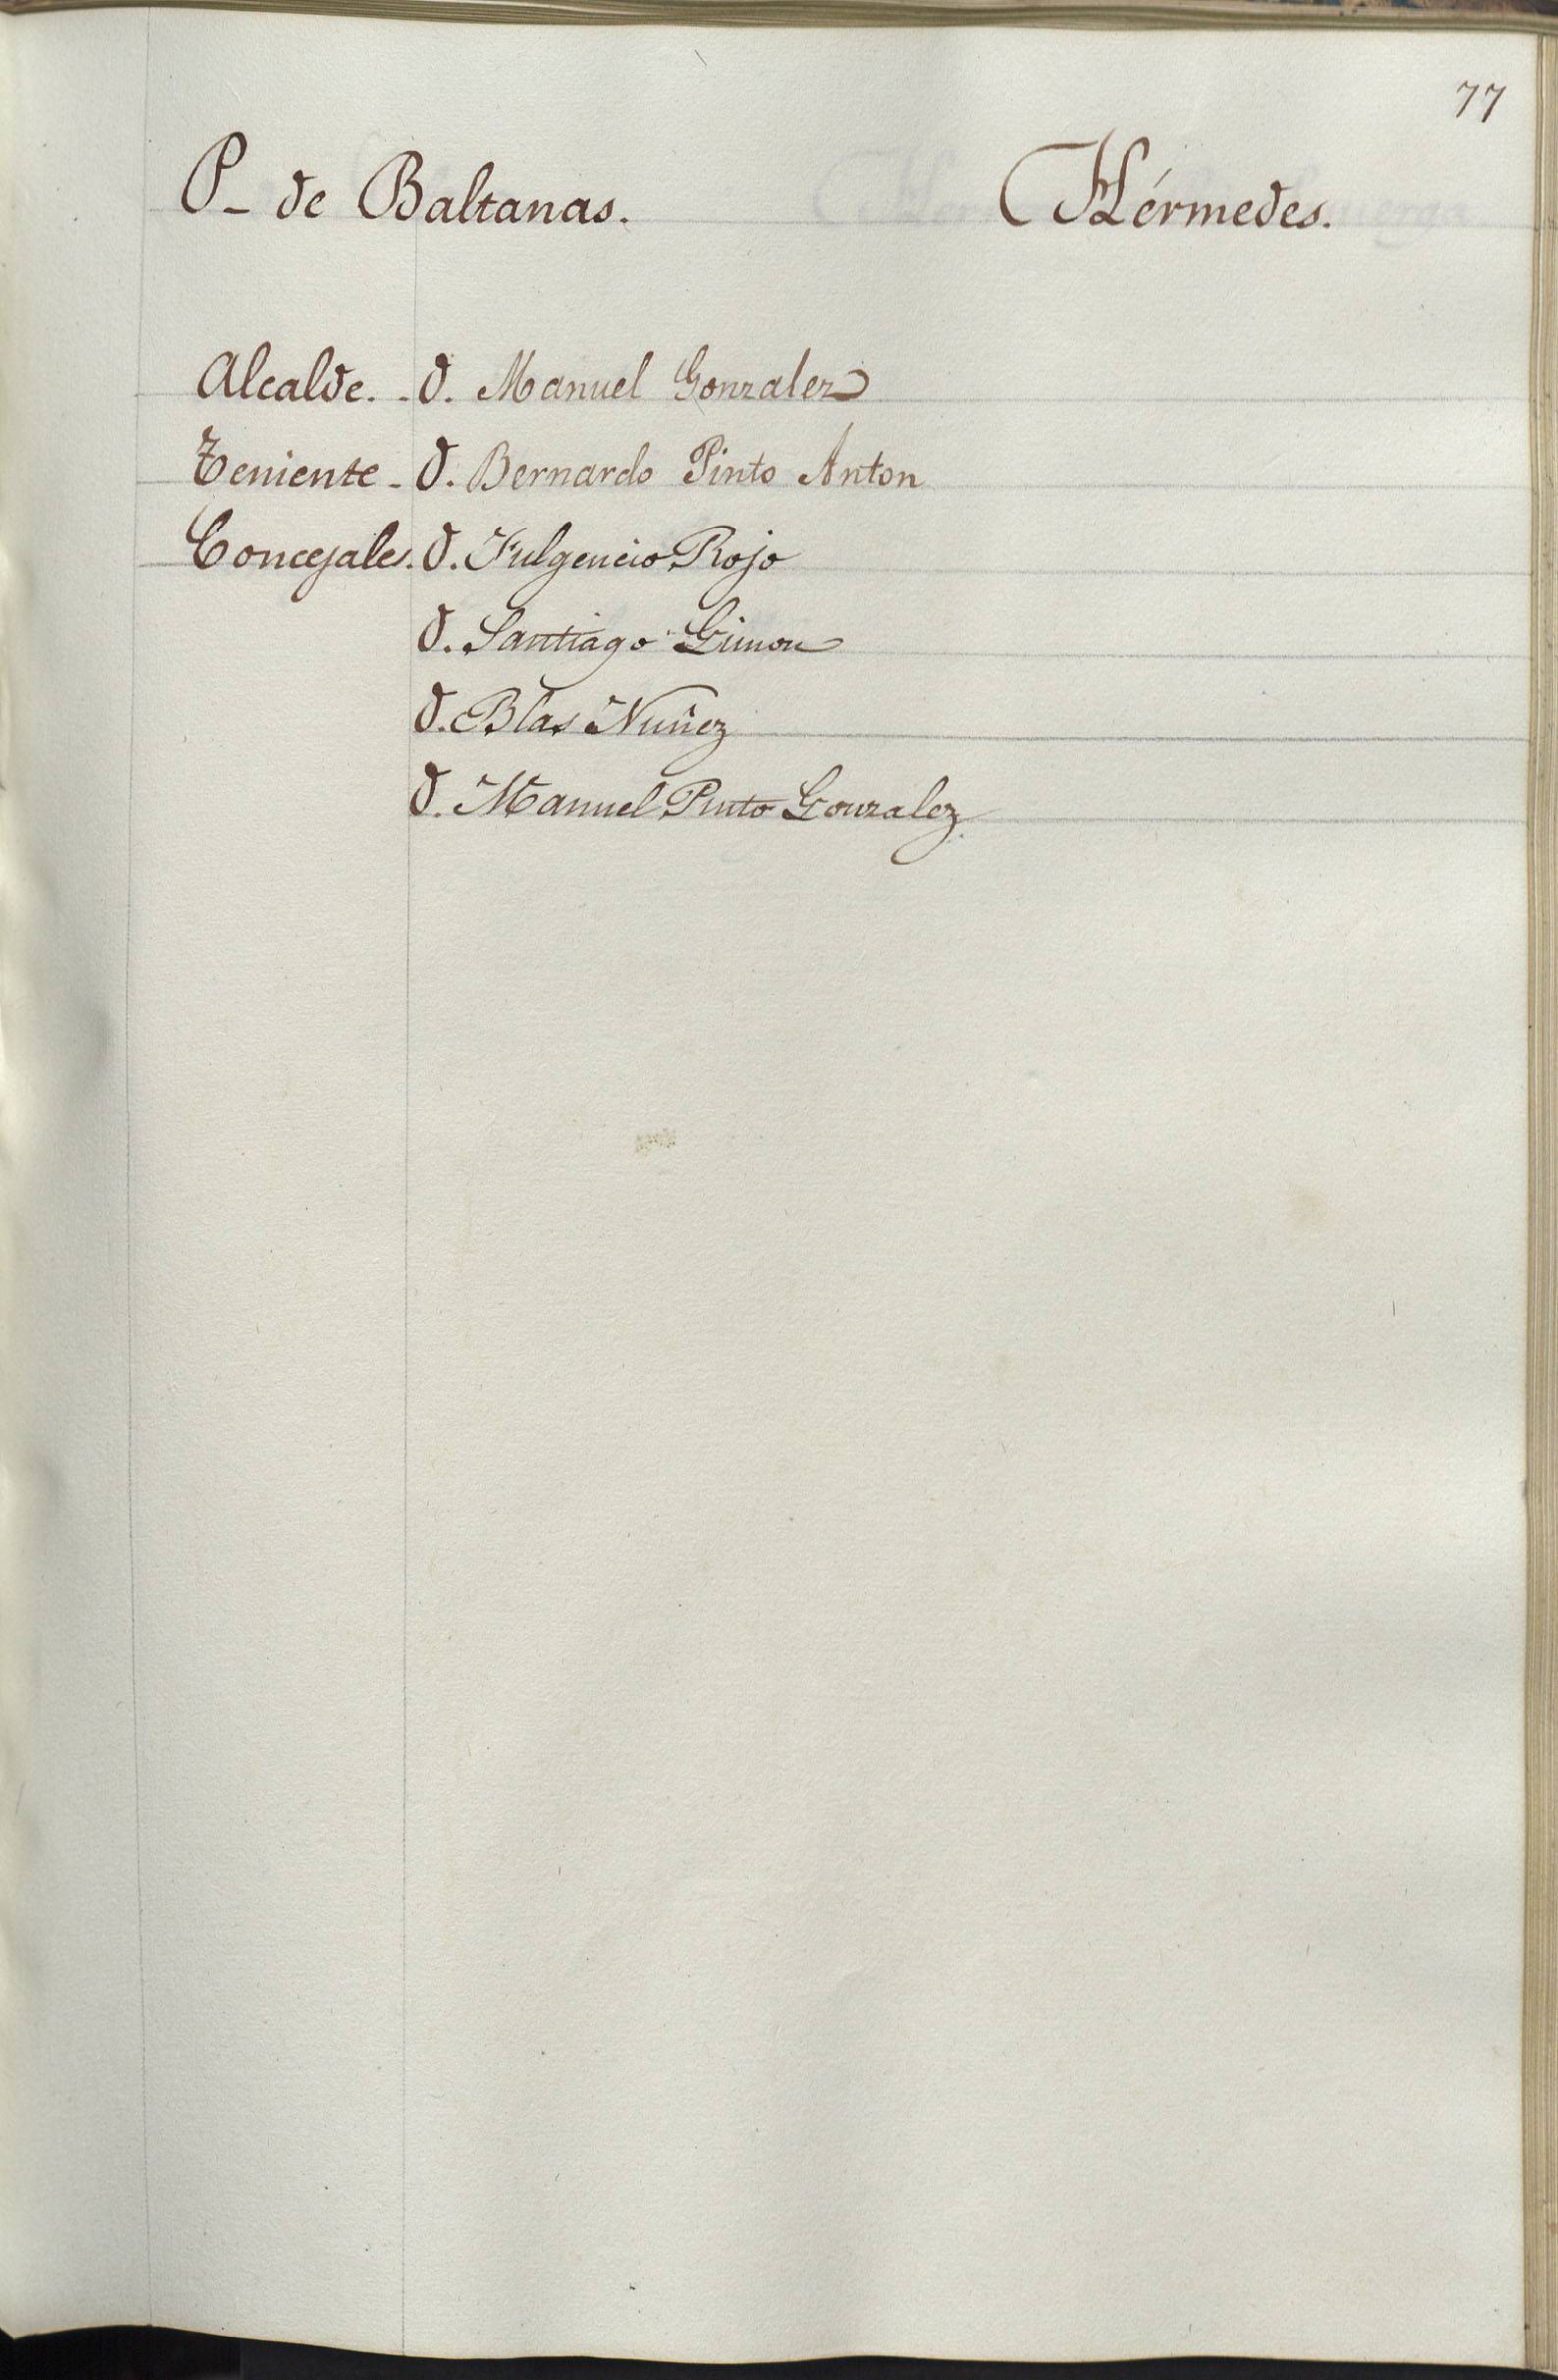 77
P- de Baltanas. Hérmedes.
Alcalde. - D. Manuel Gonzalez
Teniente - D. Bernardo Pinto Anton
Concejales. D. Fulgencio Rojo
D. Santiago Gimon
D. Blas Nuñez
D. Manuel Pinto Gonzalez